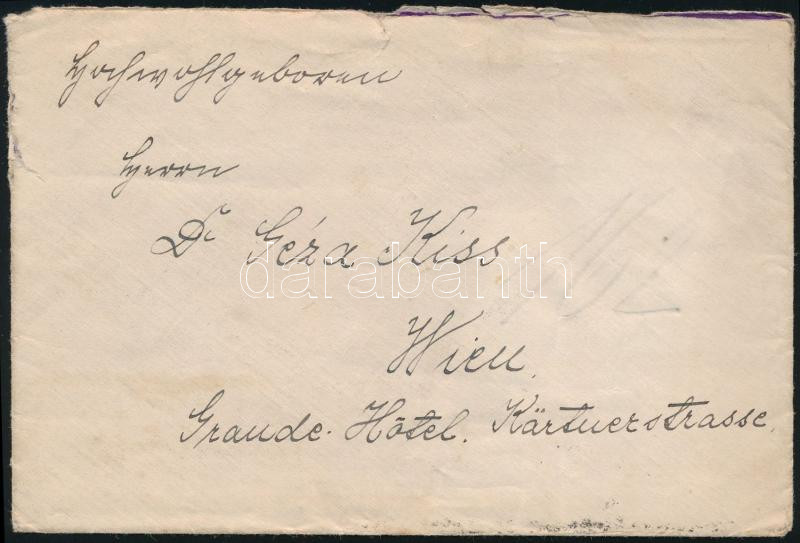 Hochwohlgeboren
Herrn
Dr Géza Kiss
darabanth
Wien,
Grande. Hôtel. Kärtnerstrasse.